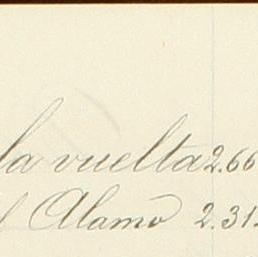 la vuelta 2.66
l Alamo 2.31